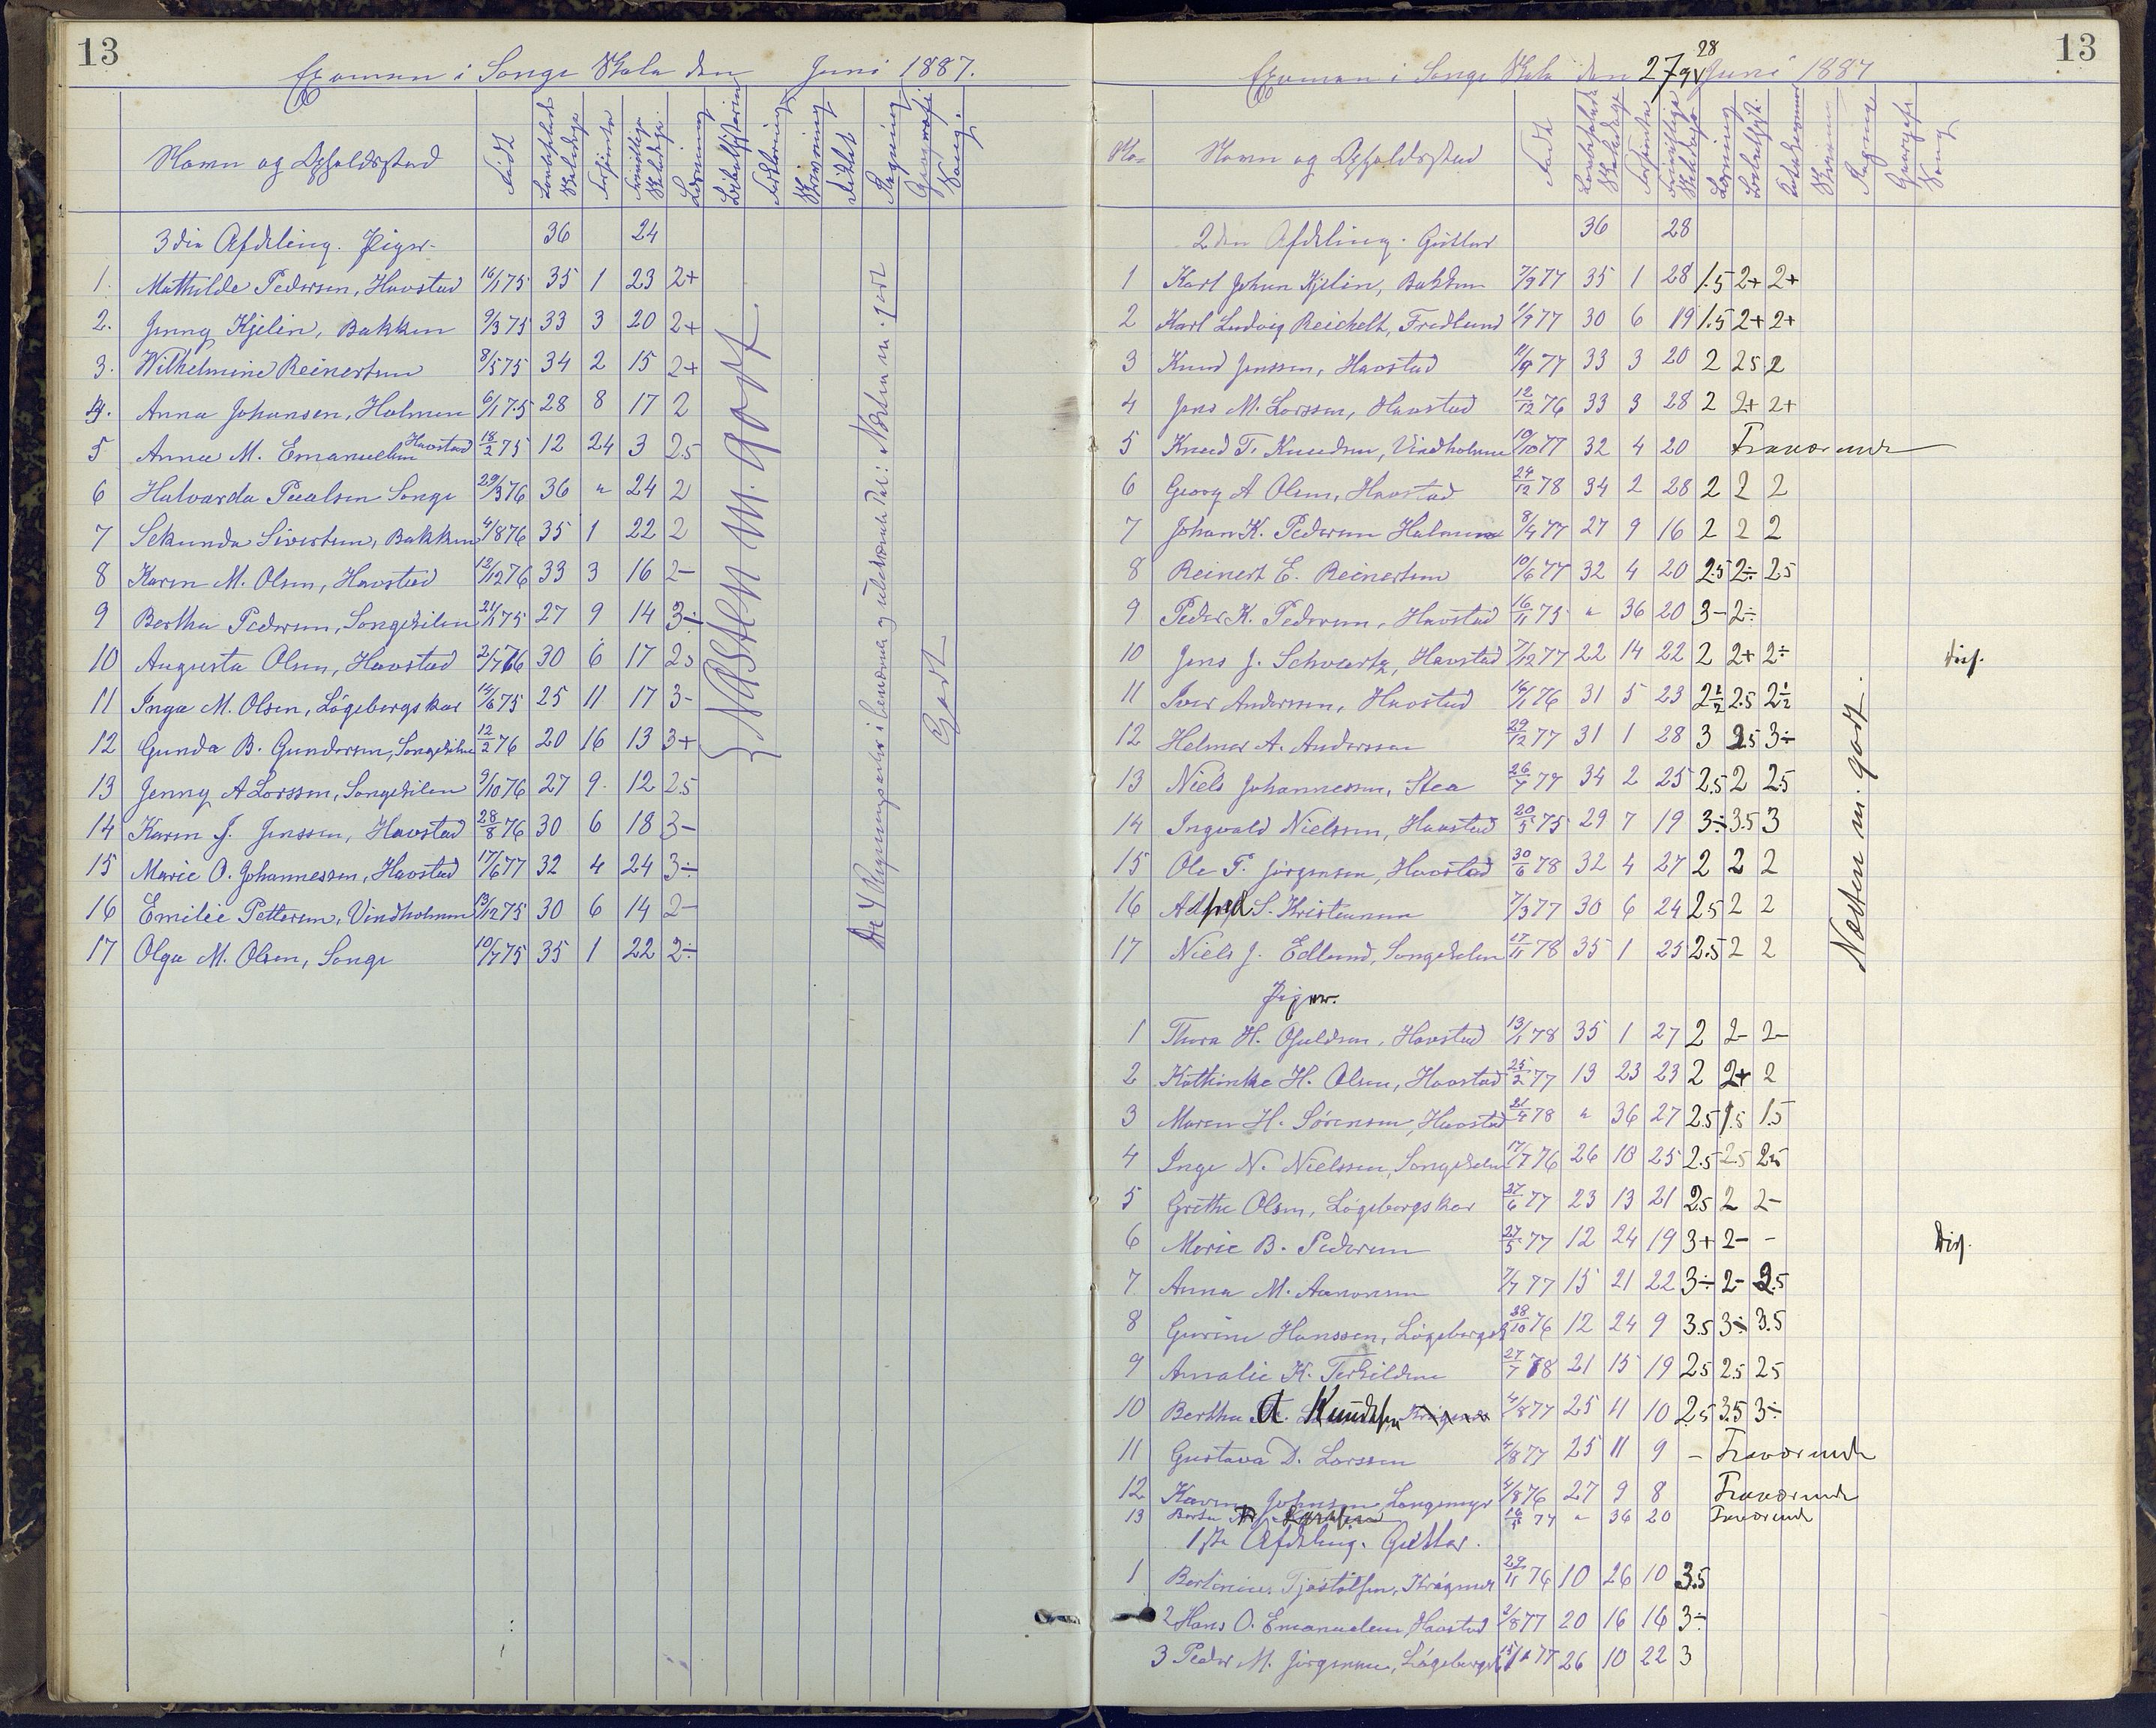 13
Examen i Songe Skole den Juni 1887.
Navn og Opholdssted
Født
Lovbefalede Skoledage
Forsømte
Frivillige Skoledage
Læsning
Bibelhistorie
Forklaring
Skrivning
Diktat
Regning
Geografi
Sang.
3die Afdeling. Piger. 36 24
1. Mathilde Pedersen, Havstad 16/1 75 35 1 23 2+
2. Jenny Kjelin, Bakken 9/3 75 33 3 20 2+
3. Wilhelmine Reinertsen 8/5 75 34 2 15 2+
4. Anna Johansen, Holmen 6/1 75 28 8 17 2
5 Anna M. Emanuelsen Havstad 18/2 75 12 24 3 2.5
6 Halvarda Paulsen Songe 29/3 76 36 " 24 2
7 Sekunda Sivertsen, Bakken 4/8 76 35 1 22 2
8 Karen M. Olsen, Havstad 12/12 76 33 3 16 2-
9 Bertha Pedersen, Songekilen 21/1 75 27 9 14 3÷
10 Augusta Olsen, Havstad 2/7 76 30 6 17 2.5
11 Inga M. Olsen, Lögebergskar 14/6 75 25 11 17 3-
12 Gunda B. Gundersen, Songekilen 12/2 76 20 16 13 3+
13 Jenny A Larssen, Songekilen 9/10 76 27 9. 12 2.5
14 Karen J. Jenssen, Havstad 28/8 76 30 6 18 3-
15 Marie O. Johannessen, Havstad 17/6 77 32 4 24 3÷
16 Emilie Pettersen, Vindholmen 13/12 75 30 6 14 2-
17 Olga M. Olsen, Songe 10/7 75 35 1 22 2÷
Næsten m. godt.
De 4 Regningsarter i benævnte og ubenævnte Tal: Næsten m. godt
Godt
13
Examen i Songe Skole den 27 og 28 Juni 1887
No
Navn og Opholdssted
Født
Lovbefalede Skoledage
Forsømte
Frivillige Skoledage
Læsning
Bibelhist.
Skrivning
Regning
Geografi
Sang
2den Afdeling. Gutter 36 28
1 Karl Johan Kjelin, Bakken 7/9 77 35 1 28 1.5 2+ 2+
2 Karl Ludvig Reichelt, Fredlund 1/9 77 30 6 19 1.5 2+ 2+
3 Knud Jenssen, Havstad 11/9 77 33 3 20 2 2.5 2
4 Jens M. Larssen, Havstad 12/12 76 33 3 28 2 2+ 2+
5 Knud T. Knudsen, Vindholmen 10/10 77 32 4 20 Fraværende
6 Georg A Olsen, Havstad 24/12 78 34 2 28 2 2 2
7 Johan K. Pedersen Holmen 8/4 77 27 9 16 2 2 2
8 Reinert E. Reinertsen 10/6 77 32 4 20 2.5 2÷ 2.5
9 Peder K. Pedersen, Havstad 16/11 75 " 36 20 3- 2÷
10 Jens J. Schwartz, Havstad 7/12 77 22 14 22 2 2+ 2÷
11 Iver Andersen, Havstad 16/1 76 31 5 23 2½ 2.5 2½
12 Helmer A. Andersen 29/12 77 31 1 28 3 2.5 3÷
13 Niels Johannessen, Stea 26/7 77 34 2 25 2.5 2 2.5
14 Ingvald Nielssen, Havstad 20/5 75 29 7 19 3÷ 3.5 3
15 Ole P. Jörgensen, Havstad 30/6 78 32 4 27 2 2 2
16 S. Kristensen 7/3 77 30 6 24 2.5 2 2
17 Niels J. Edlund, Songekilen 17/11 78 35 1 25 2.5 2 2
Næsten m. godt.
Piger.
1 Thora H. Olsen, Havstad 13/1 78 35 1 27 2 2- 2-
2 Kathinka H. Olsen, Havstad 25/2 77 13 23 23 2 2+ 2
3 Maren H. Sörensen, Havstad 21/4 78 " 36 27 2.5 1.5 1.5
4 Inge N. Nielssen, Songekilen 17/7 76 26 10 25 2.5 2.5 2.5
5 Grethe Olsen, Lögebergskar 27/6 77 23 13 21 2.5 2 2-
6 Marie B. Pedersen 27/5 77 12 24 19 3+ 2- -
7 Anna M. Aanonsen 7/7 77 15 21 22 3÷ 2- 2.5
8 Gurine Hanssen, Lögebergsk 28/10 76 12 24 9 3.5 3÷ 3.5
9 Amalie K. Terkildsen 27/7 78 21 15 19 2.5 2.5 2.5
10 Bertha A Knudsen 4/8 77 25 11 10 2.5 3.5 3÷
11 Gustava D. Larssen 4/8 77 25 11 9 - Fraværende
12 Karen Johnsen Langemyr 4/8 76 27 9 8 Fraværende
13 Larssen 77 " 36 20 Fraværende
1ste Afdeling. Gutter.
1 Bertinius Tjøstolfsen, Krögenes 29/11 76 10 26 10 3.5
2 Hans O. Emanuelsen, Havstad 2/8 77 20 16 16 3÷
3 Peder M. Jörgensen, Lögebergsk 77 26 10 22 3